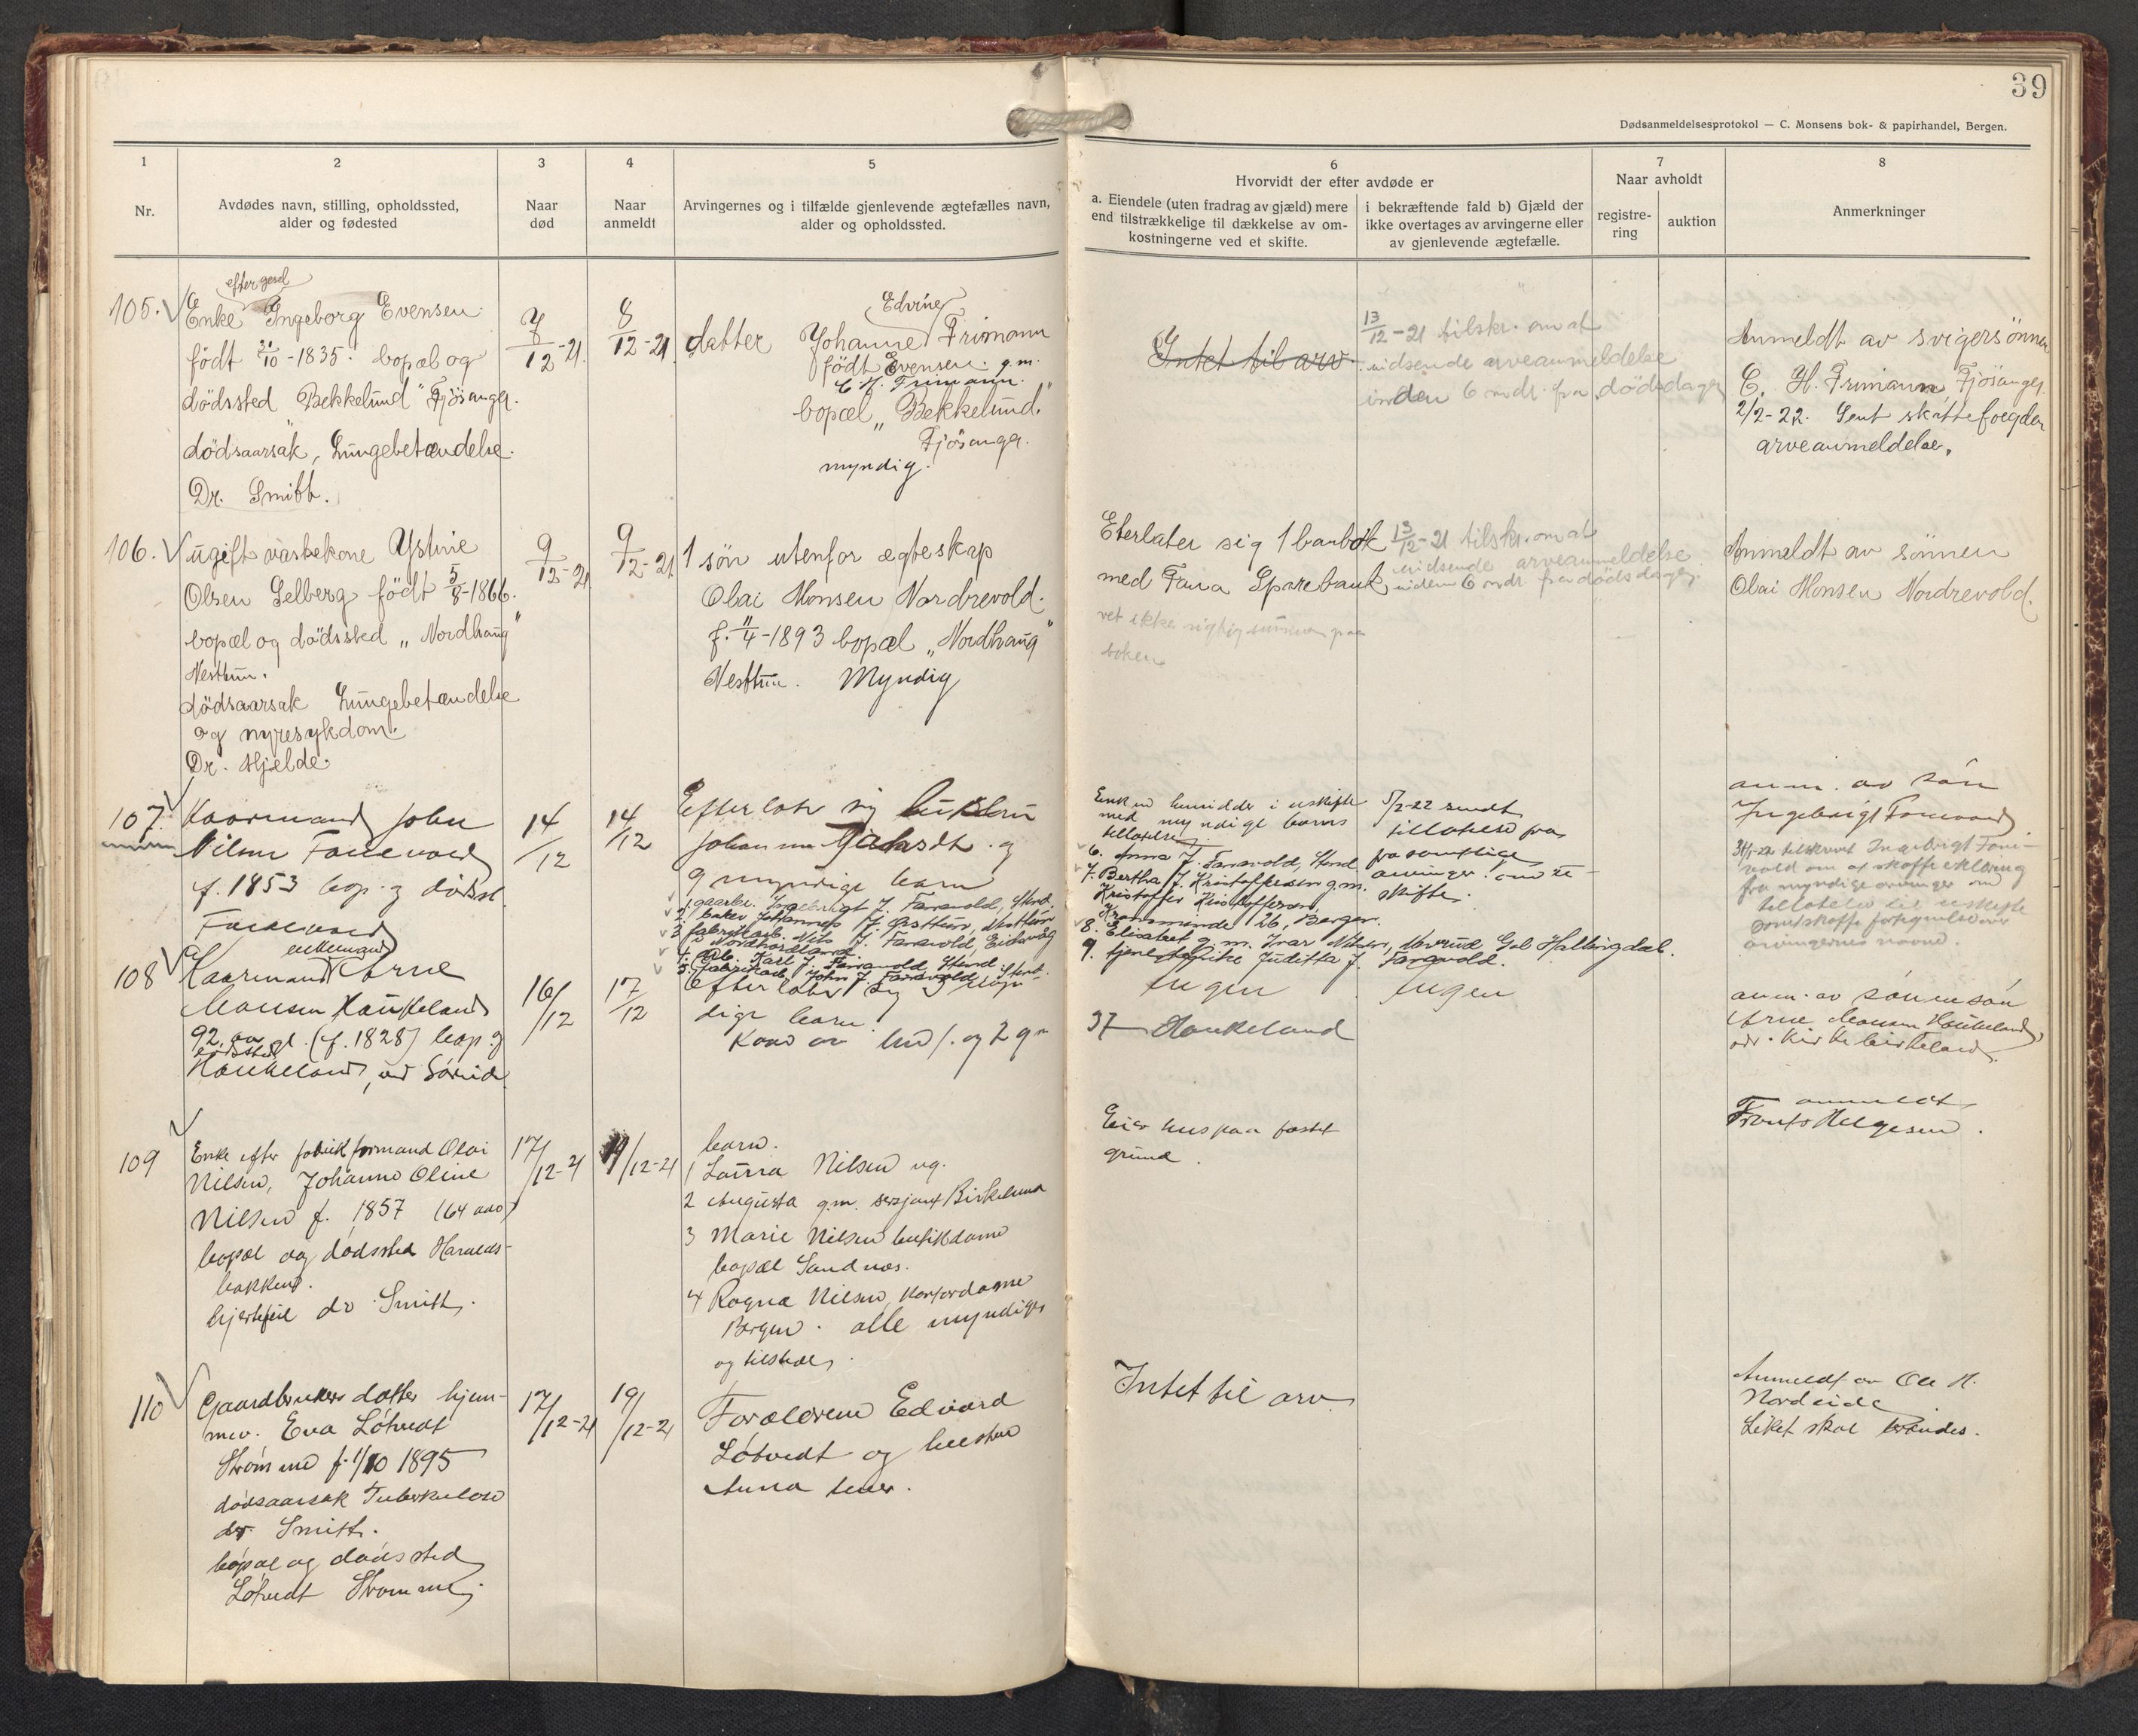 39
Dødsanmeldelsesprotokol — C. Monsens bok- & papirhandel, Bergen.
1
2
3
4
5
6
7
8
Nr.
Avdødes navn, stilling, opholdssted,
alder og fødested
Naar
død
Naar
anmeldt
Arvingernes og i tilfælde gjenlevende ægtefælles navn,
alder og opholdssted.
Hvorvidt der efter avdøde er
a. Eiendele (uten fradrag av gjæld) mere
end tilstrækkelige til dækkelse av om-
kostningerne ved et skifte.
i bekræftende fald b) Gjæld der
ikke overtages av arvingerne eller
av gjenlevende ægtefælle.
Naar avholdt
registre-
ring
auktion
Anmerkninger
105.
Enke Ingeborg Evensen
født 31/10-1835. bopæl og
dödssted "Bekkelund" Fjösanger.
dödsaarsak, Lungebetændelse.
Dr. Smith.
12-21.
8/12-21.
datter Johanne Edvine Frimann
født Evensen g.m.
C. H. Frimann.
bopæl "Bekkelund"
Fjösanger.
myndig.
Intet til arv.
13/12-21 tilskr. om at
indsende arveanmeldelse
inden 6 mdr. fra dødsdagen
Anmeldt av svigersönnen
C. H. Frimann Fjösanger.
2/2-22. Sent skattefogden
arveanmeldelse.
106.
ugift vaskekone Ystine
Olsen Selberg født 5/8-1866.
bopæl og dödssted "Nordhaug"
Nesttun.
dödsaarsak Lungebetændelse
og nyresykdom.
Dr. Hjelde.
9/12-21
9/12-21
1 søn utenfor ægteskap
Olai Monsen Nordrevold.
f. 11/4-1893 bopæl "Nordhaug"
Nesttun. Myndig
Eterlater sig 1 bankbok
med Fana Sparebank
vet ikke rigtig summen paa
boken
13/12-21 tilskr. om at
indsende arveanmeldelse
inden 6 mdr fra dødsdagen.
Anmeldt av sönnen
Olai Monsen Nordrevold.
107.
Kaarmand John
Nilsen Fanevold
f. 1853 bop. og dødsst.
Fanevold
14/12
14/12
Efterlater sig
Johanne og
9 myndige barn
1. gaarbr. Ingebrigt J. Fanevold, Stend.
2. baker Johannes J. Nesttun
3. fabrikarb. Nils J. Fanevold, Eidsvåg
i Nordhordland
4. arb. Karl J. Fanevold Stend.
5. fabrikarb. John J. Fanevold, Stend.
Enken hensidder i uskifte
med myndige barns
tillatelse.
6. Anna J. Fanevold, Stend
7. Bertha J. Kristoffersen g.m.
Kristoffer Kristoffersen,
26, Bergen.
8. Elisabet g.m. Ivar Nilsen, Gol Hallingdal.
9. tjenestepike Juditta J. Fanevold.
5/2-22 sendt
tillatelse fra
fra samtlige
arvinger om u-
skifte.
anm. av søn
Ingebrigt Fanevold
31/1-22 tilskrevet Ingebrigt Fane-
vold om at skaffe erklæring
fra myndige arvinger om
tillatelse til uskifte
samt skaffe fortegnelse over
arvingernes navne.
108
Kaarmand enkemand Arne
Monsen Haukeland
92 aar gl. (f. 1828) bop. og
dødssted
Haukeland,
16/12
17/12
Efterlater sig 3 myn-
dige barn.
37 Haukeland
Ingen
Ingen
anm. av sønnesøn
Arne Monsen Haukeland,
adr. Kirkebirkeland.
109
Enke efter fabrikformand Olai
Nilsen, Johanne Oline
Nilsen f. 1857 (64 aar)
bopæl og dødssted Haralds-
bakken.
hjertefeil dr. Smith.
17/12-21
19/12-21
barn.
1 Laura Nilsen ug.
2 Augusta g.m. sersjant Birkelund
3 Marie Nilsen butikdame
bopæl Sandnæs.
4 Ragna Nilsen, kontordame
Bergen. alle myndige
og tilstede.
Eier hus paa fæstet
grund.
anmeldt
Frants Helgesen.
110
Gaardbrukers datter hjem-
mev. Eva Løtvedt
Strømme f. 1/10 1895
dødsaarsak Tuberkulose
dr. Smith.
bopæl og dødssted
Løtvedt Strømme.
17/12-21
19/12-21
Forældrene Edvard
Løtvedt og hustru
Anna lever.
Intet til arv
Anmeldt av Ole H.
Nordeide
Liket skal brændes.